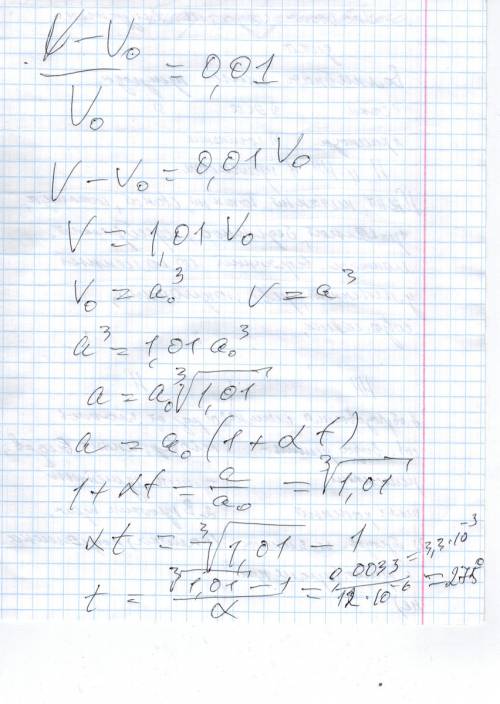 (V − V₀)/V₀ = 0,01
V − V₀ = 0,01 V₀
V = 1,01 V₀
V₀ = a₀³ V = a³
a³ = 1,01 a₀³
a = a₀ ∛1,01
a = a₀ (1 + αt)
1 + αt = a/a₀ = ∛1,01
αt = ∛1,01 − 1 = 3,3·10⁻³
t = (∛1,01 − 1)/α = 0,0033/(12·10⁻⁶) = 275°